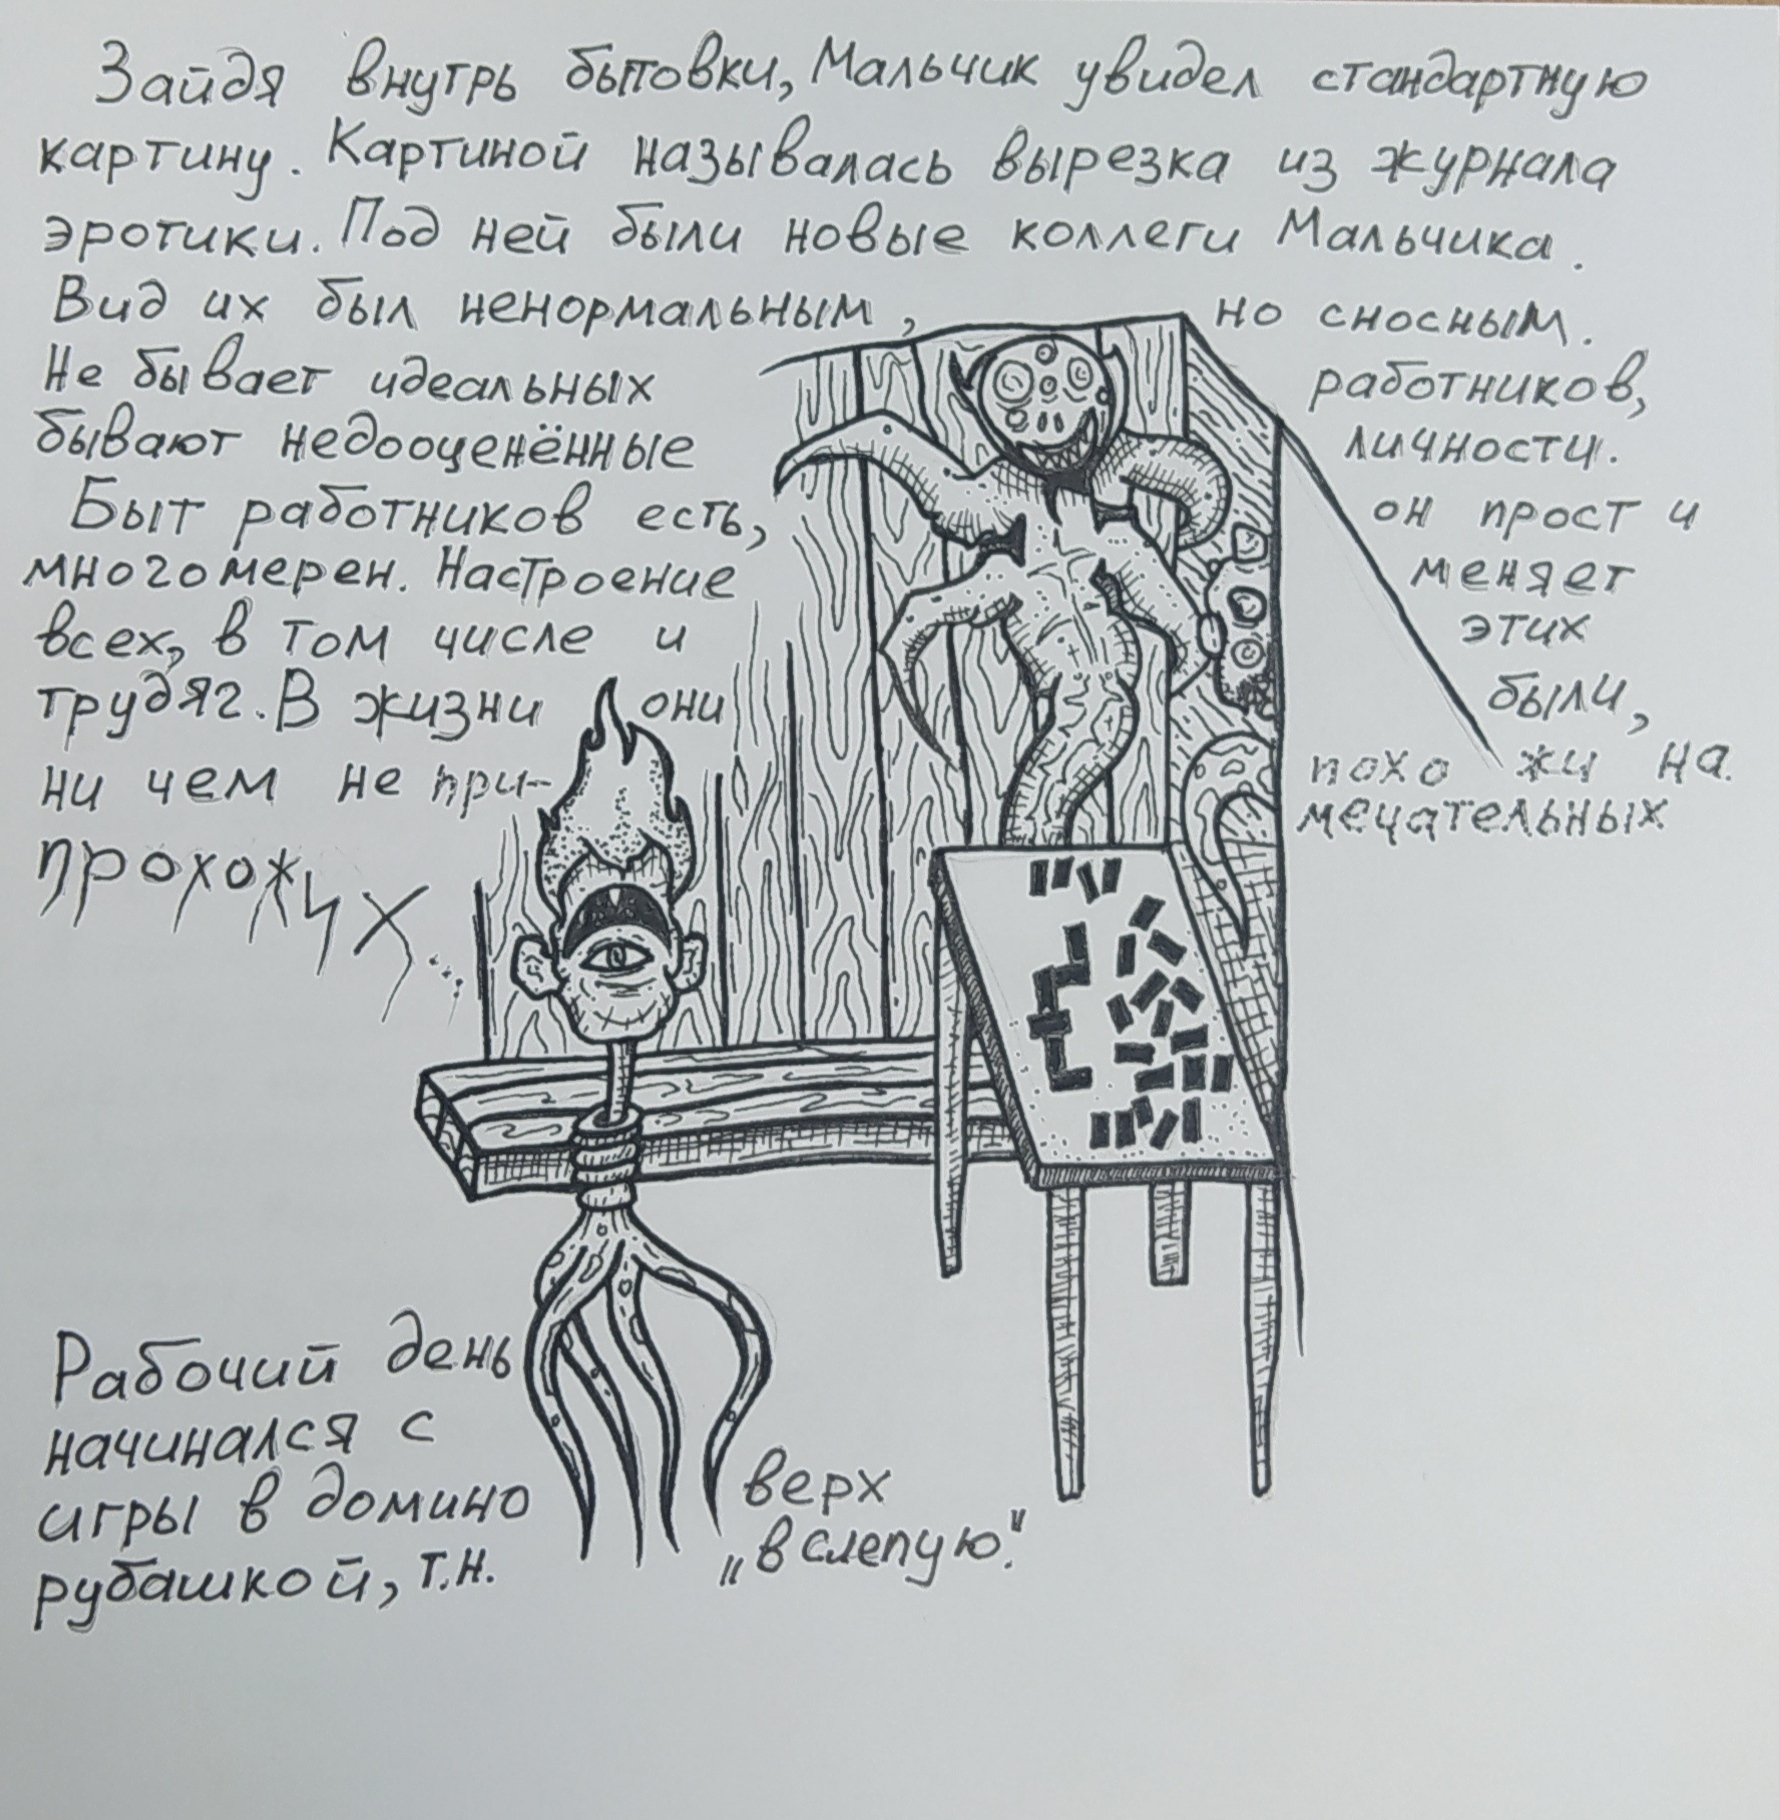 Зайдя внутрь бытовки, Мальчик увидел стандартную
картину. Картиной называлась вырезка из журнала
эротики. Под ней были новые коллеги Мальчика.
Вид их был ненормальным, но сносным.
Не бывает идеальных работников,
бывают недооценённые личности.
Быт работников есть, он прост и
многомерен. Настроение меняет
всех, в том числе и этих
трудяг. В жизни они были,
ни чем не при- похожи на
мечательных
прохожих...
Рабочий день
начинался с
игры в домино верх
рубашкой, т.н. „вслепую."